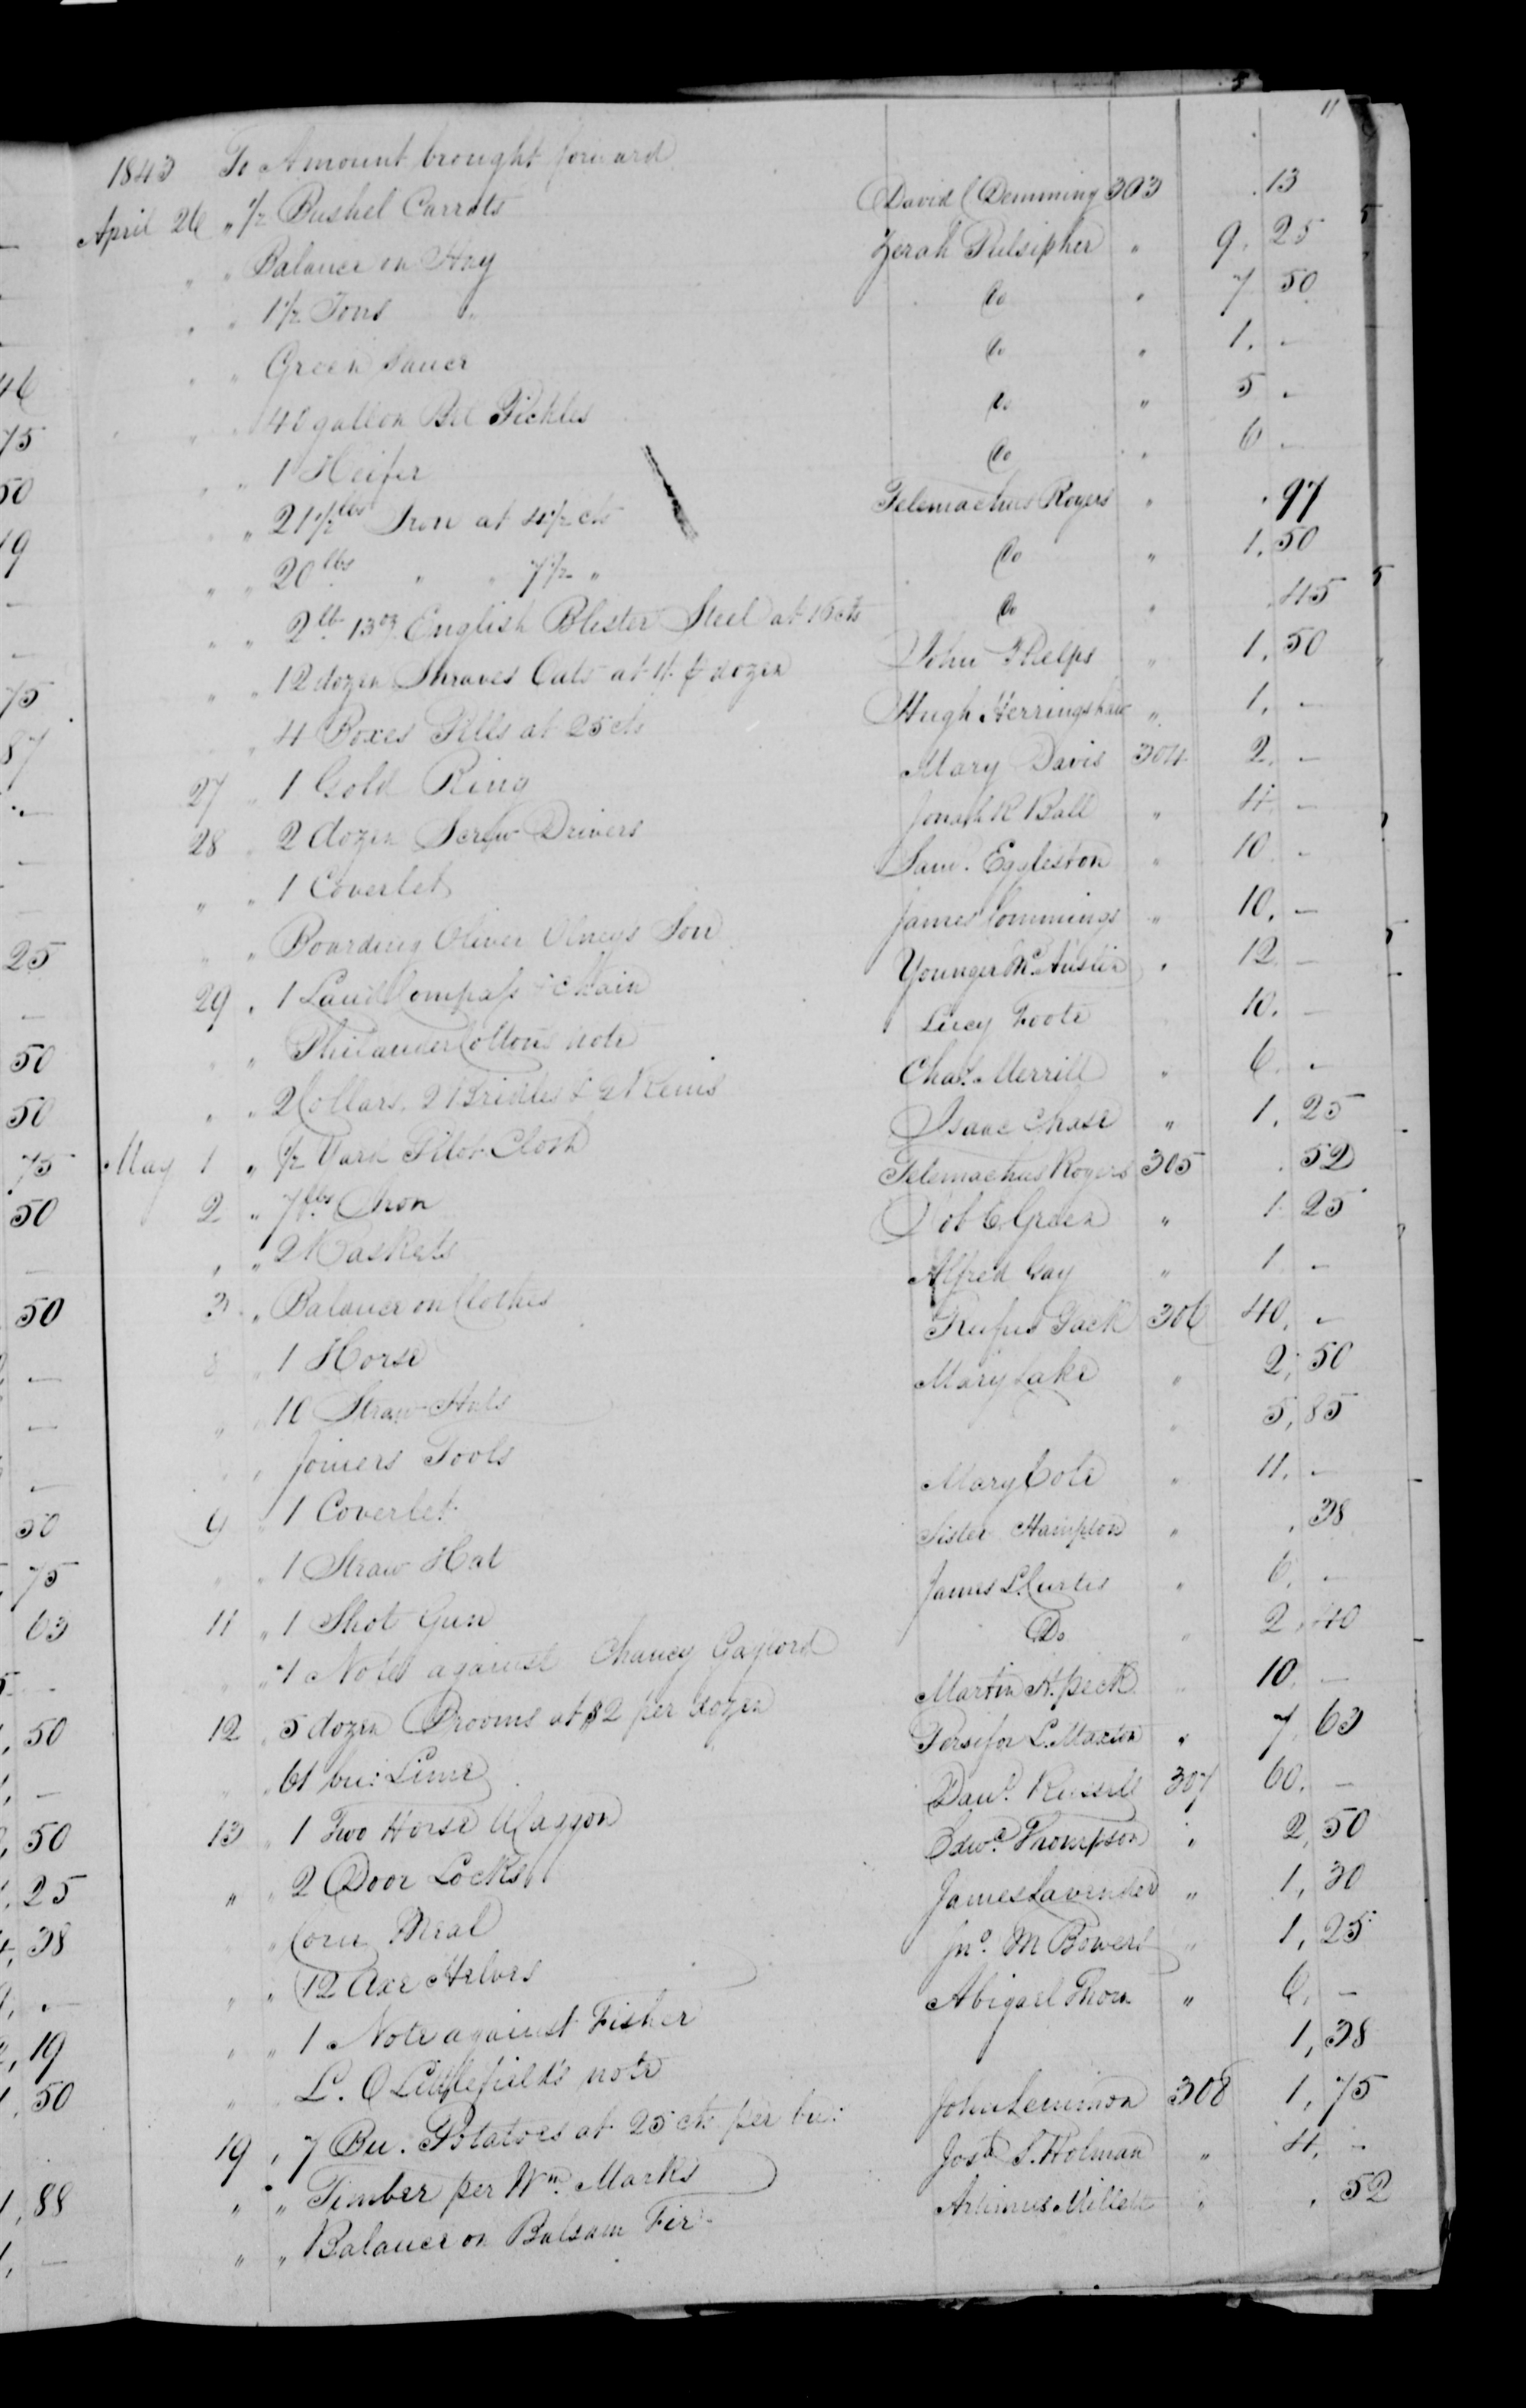 11
1843 To Amount brought forward
April 26 " 1/2 Bushel Carrots David Demming 303 .13
" " Balance on Hay Zerah Pulsipher " 9. 25
" " 1 1/2 Tons " do " 7 50
" " Green Sauce do " 1. -
" " 40 gallon Bbl Pickles do " 5 -
" " 1 Heifer do " 6 -
" " 21 1/2 lbs Iron at 4 1/2 cts Telemachus Rogers " .97
" " 20 lbs " " 7 1/2 " do " 1. 50
" " 2 lb 13 oz English Blister Steel at 16 cts do " .45
" " 12 dozen Shraves Oats at 1/. p dozen John Phelps " 1. 50
" 4 Boxes Pills at 25 cts Hugh Herringshaw " 1. -
27 " 1 Gold Ring Mary Davis 304 2. -
28 " 2 dozen Screw Drivers Jonah R Ball " 4. -
" " 1 Coverlet Saml. Eggleston " 10 -
" " Boarding Oliver Olney's Son James Commings " 10. -
29 " 1 Land Compass & Chain Younger McAuslin " 12. -
" " Philander Colton's note Lucy Foote 10. -
" " 2 Collars, 2 Bridles & 2 Reins Chas. Merrill " 6. -
May 1 " 1/2 Yard Pilot Cloth Isaac Chase " 1. 25
2 " 7 lbs Iron Telemachus Rogers 305 .52
" " 2 Baskets Job C. Green " 1. 25
3 " Balance on Clothes Alfred Gay " 1 -
" 1 Horse Rufus Pack 306 40. -
" " 10 Straw Hats Mary Lake " 2, 50
" " Joiners Tools " 5, 85
9 " 1 Coverlet Mary Cole " 11. -
" " 1 Straw Hat Sister Hampton " , 38
11 " 1 Shot Gun James L. Curtis " 6. -
" " 1 Note against Chaucy Gaylord Do " 2, 40
12 " 5 dozen Brooms at $2 per dozen Martin H. Peck " 10. -
" " 61 bu: Lime Persifor L. Maxton " 7, 63
13 " 1 Two Horse Waggon Danl. Russell 307 60. -
" " 2 Door Locks Edwd. Thompson " 2, 50
" Corn Meal James Lavender " 1, 30
" " 12 Axe Helves Jno. M Bowers " 1, 25
" " 1 Note against Fisher Abigail Thorn " 6. -
" L. O Littlefield's note 1, 38
19 " 7 Bu. Potatoes at 25 cts per bu: John Lemmon 308 1, 75
" " Timber per Wm. Marks Josa. S. Holman " 4. -
" " Balance on Balsam Fir Artimus Millett " , 52